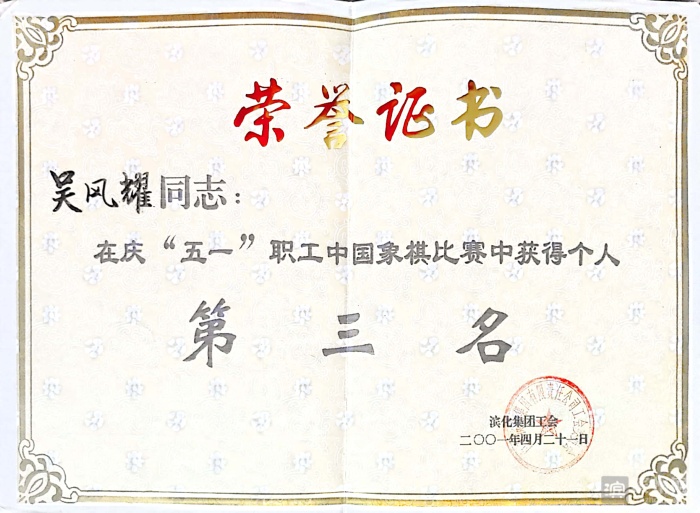 荣誉证书
吴风耀同志：
在庆“五一”职工中国象棋比赛中获得个人
第三名
滨化集团工会
二〇〇一年四月二十一日
滨